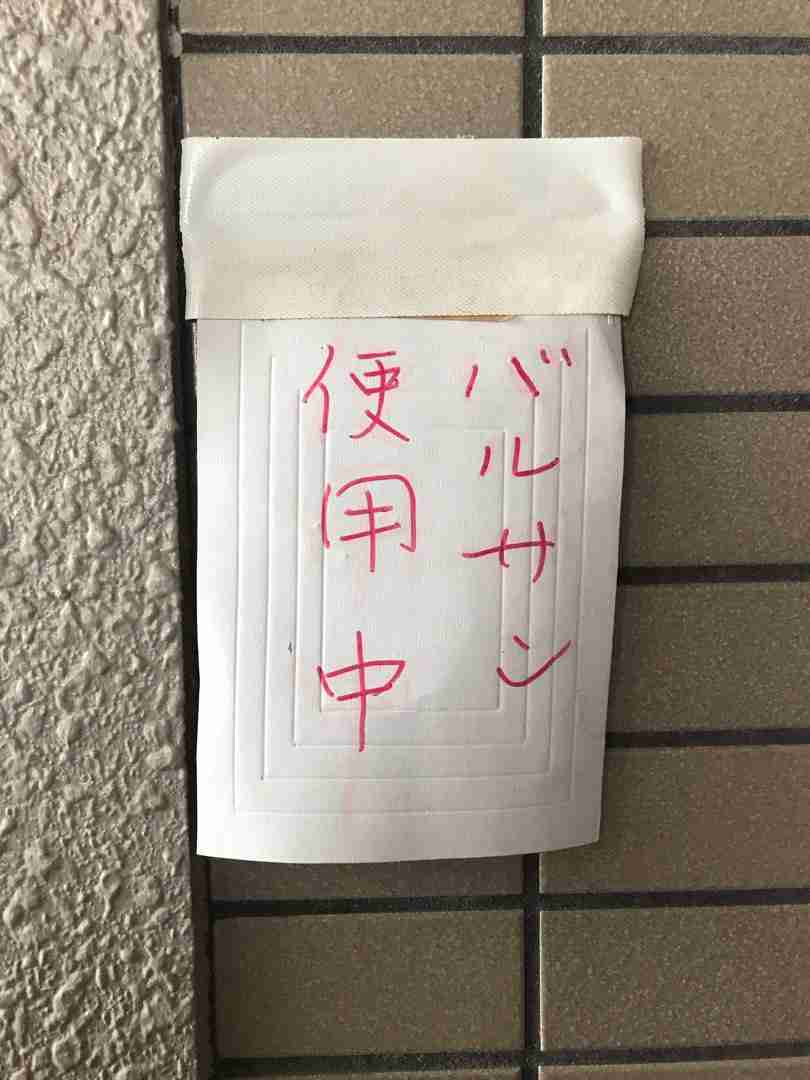 バルサン
使用中